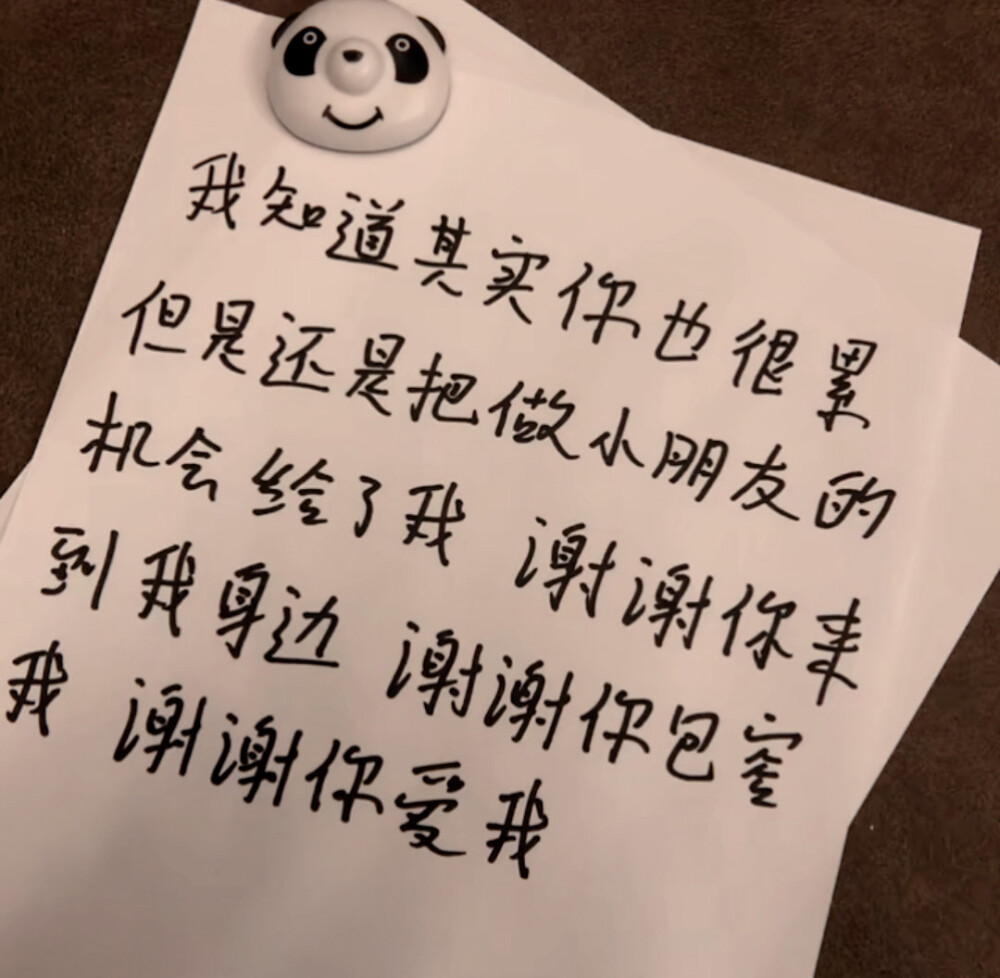 我知道其实你也很累
但是还是把做小朋友的
机会给了我 谢谢你来
到我身边 谢谢你包容
我 谢谢你爱我